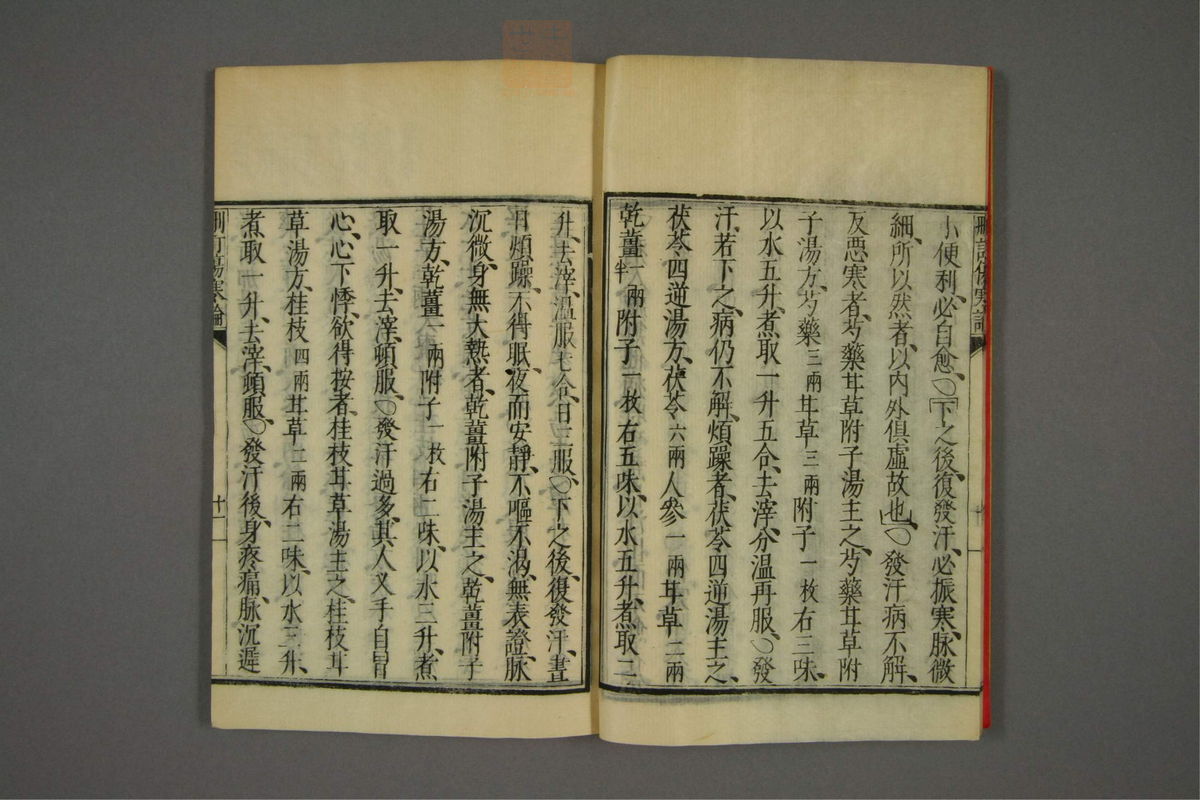 小便利、必自愈、○「下之後、復發汗、必振寒、脉微
細、所以然者、以內外俱虛故也」○發汗病不解、
反惡寒者、芍藥甘草附子湯主之、芍藥甘草附
子湯方、芍藥三兩甘草三兩附子一枚右三味、
以水五升、煮取一升五合、去滓、分溫再服、○發
汗、若下之、病仍不解、煩躁者、茯苓四逆湯主之、
茯苓四逆湯方、茯苓六兩人參一兩甘草二兩
乾薑一兩半附子一枚右五味、以水五升、煮取二
升、去滓、溫服七合、日三服、○下之後、復發汗、晝
日煩躁、不得眠、夜而安靜、不嘔不渴、無表證、脉
沉微、身無大熱者、乾薑附子湯主之、乾薑附子
湯方、乾薑一兩附子一枚右二味、以水三升、煮
取一升、去滓、頓服、○發汗過多、其人叉手自冒
心、心下悸、欲得按者、桂枝甘草湯主之、桂枝甘
草湯方、桂枝四兩甘草二兩右二味、以水三升、
煮取一升、去滓、頓服、○發汗後、身疼痛、脉沉遲
刪訂傷寒論
十一